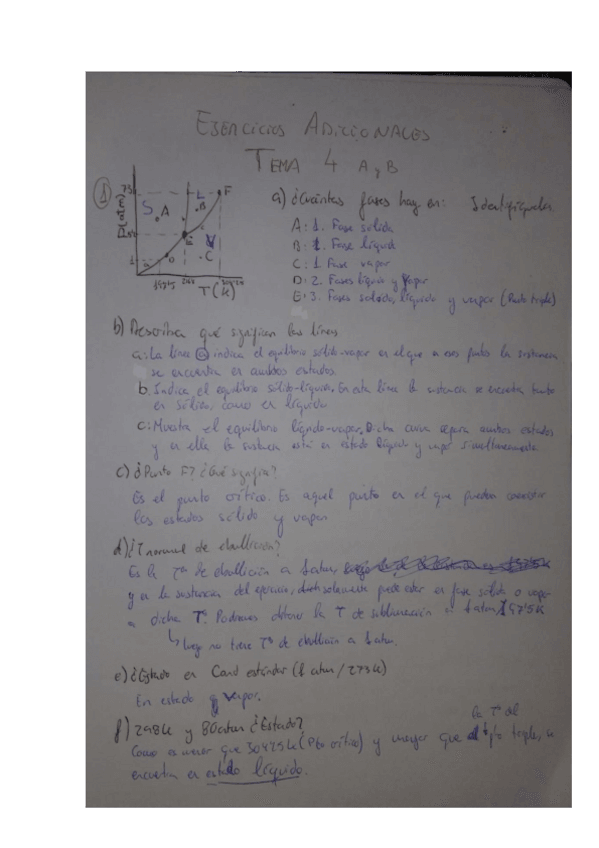 EJERCICIOS ADICIONALES
TEMA 4 A y B
1
73
P(atm)
1
S
A
L
B
F
E
V
C
D
T(K)
a) ¿Cuántas fases hay en: Identifíquelas
A: 1. Fase sólida
B: 1. Fase líquida
C: 1 Fase vapor
D: 2. Fases líquia y vapor
E: 3. Fases sólido, líquido y vapor (Punto triple)
b) Describa qué significan las líneas
a: La línea a indica el equilibrio sólido-vapor en el que a esos puntos la sustancia
se encuentra en ambos estados
b. Indica el equilibrio sólido-líquido. En esta línea la sustancia se encuentra tanto
en sólido, como en líquido
c: Muestra el equilibrio líquido-vapor. Dicha curva separa ambos estados
y en ella la sustancia está en estado líquido y vapor simultáneamente.
c) ¿Punto F? ¿Qué significa?
Es el punto crítico. Es aquel punto en el que pueden coexistir
los estados sólido y vapor
d) ¿T normal de ebullición?
Es la Tª de ebullición a 1 atm,
y en la sustancia del ejercicio, solamente puede estar en fase sólida o vapor
a dicha Tª. Podremos obtener la T de sublimación a 1 atm,
luego no tiene Tª de ebullición a 1 atm.
e) ¿Estado en Cond estándar (1 atm/273K)
En estado vapor.
f) 298K y 80atm ¿Estado?
la Tª del
Como es menor que 304'25K (Pto crítico) y mayor que pto triple, se
encuentra en estado líquido.